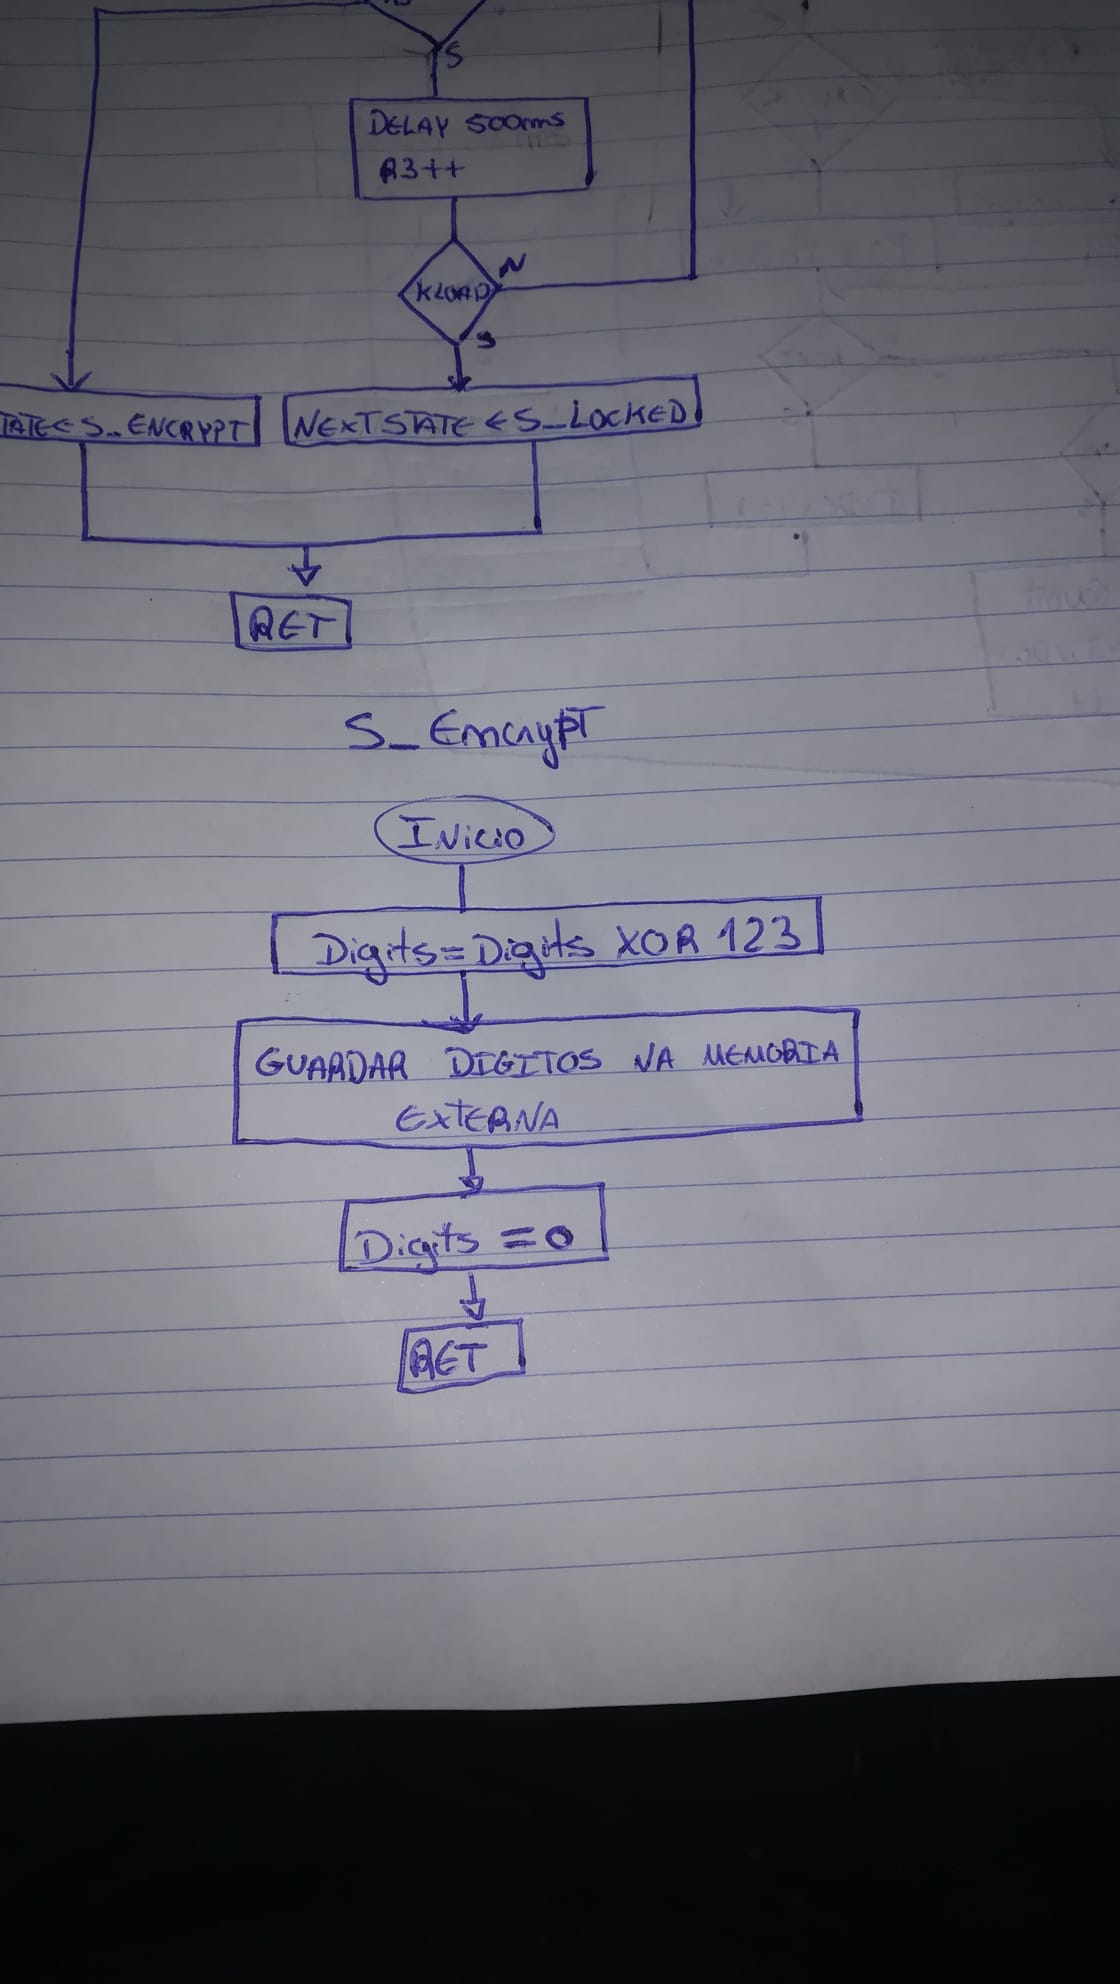 S
DELAY 500ms
R3++
KLOAD
N
S
TATE<S_ENCRYPT
NEXTSTATE<S_LOCKED
RET
S_Encrypt
INicio
Digits=Digits XOR 123
GUARDAR DIGITOS NA MEMORIA
EXTERNA
Digits = 0
RET